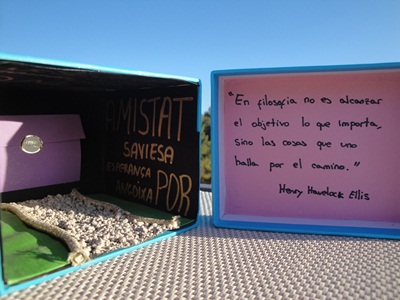 AMISTAT
SAVIESA
ESPERANÇA
ANGOIXA
POR
"En filosofia no es alcanzar
el objetivo lo que importa,
sino las cosas que uno
halla por el camino."
Henry Havelock Ellis